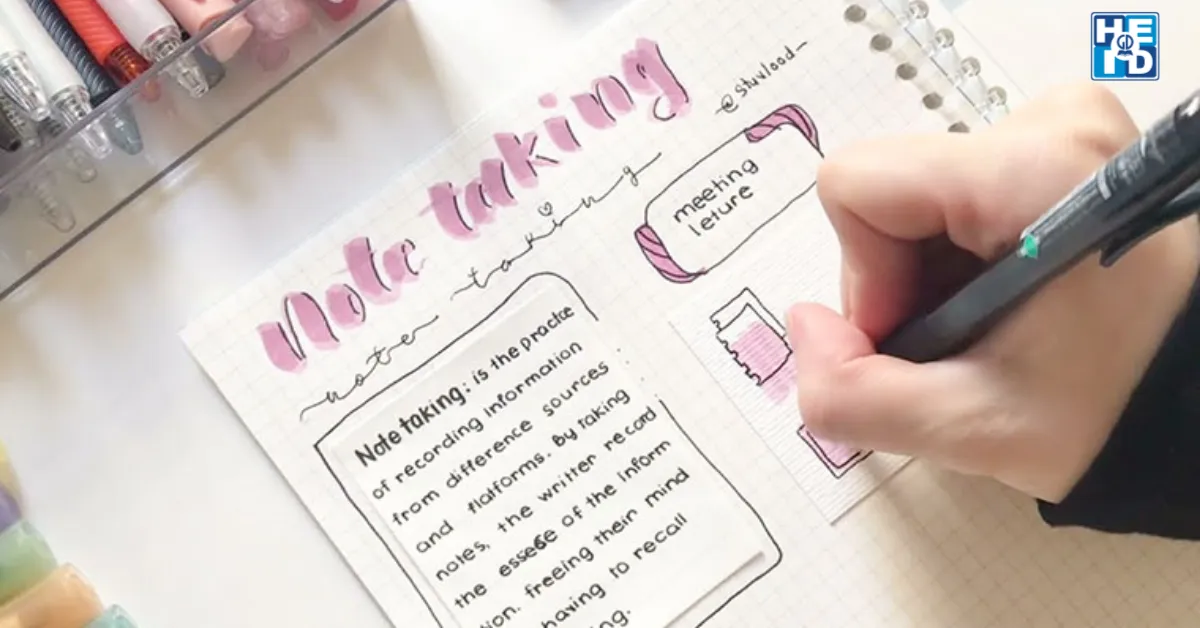 Note taking
note taking
@stuvlood
meeting
leture
Note taking: is the practice
of recording information
from difference sources
and flatforms. By taking
notes, the writer record
the essece of the inform
tion. freeing their mind
having to recall
ng.
HEID